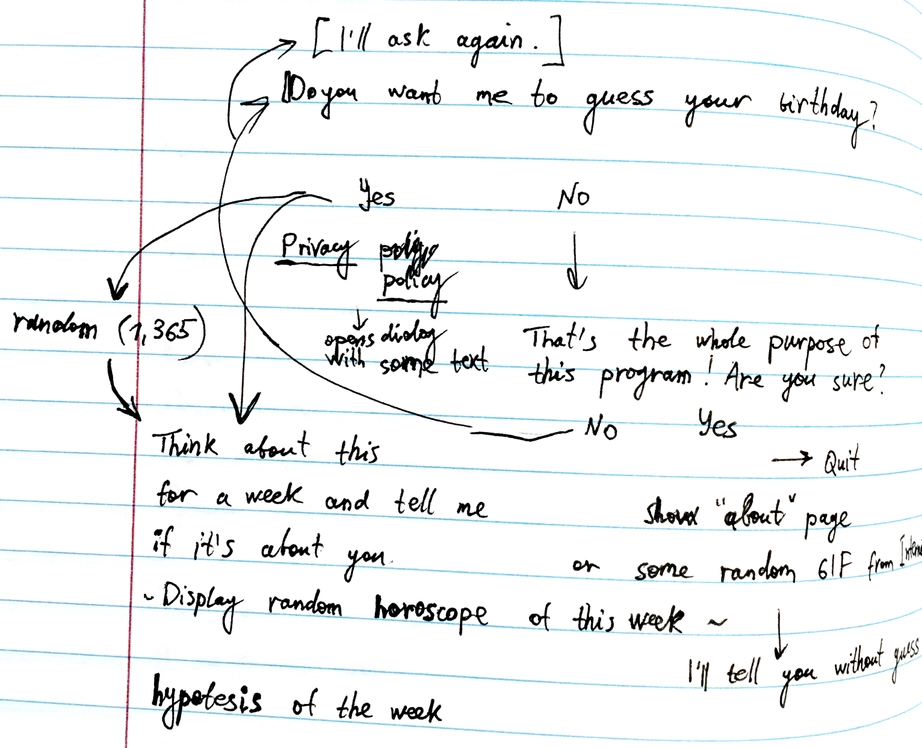 [I'll ask again.]
Do you want me to guess your birthday?
Yes No
Privacy
policy
random (1,365)
opens dialog
with some text
That's the whole purpose of
this program! Are you sure?
No Yes
Quit
Think about this
for a week and tell me
if it's about you.
show "about" page
or some random GIF from
~ Display random horoscope of this week ~
I'll tell you without guess
hypotesis of the week